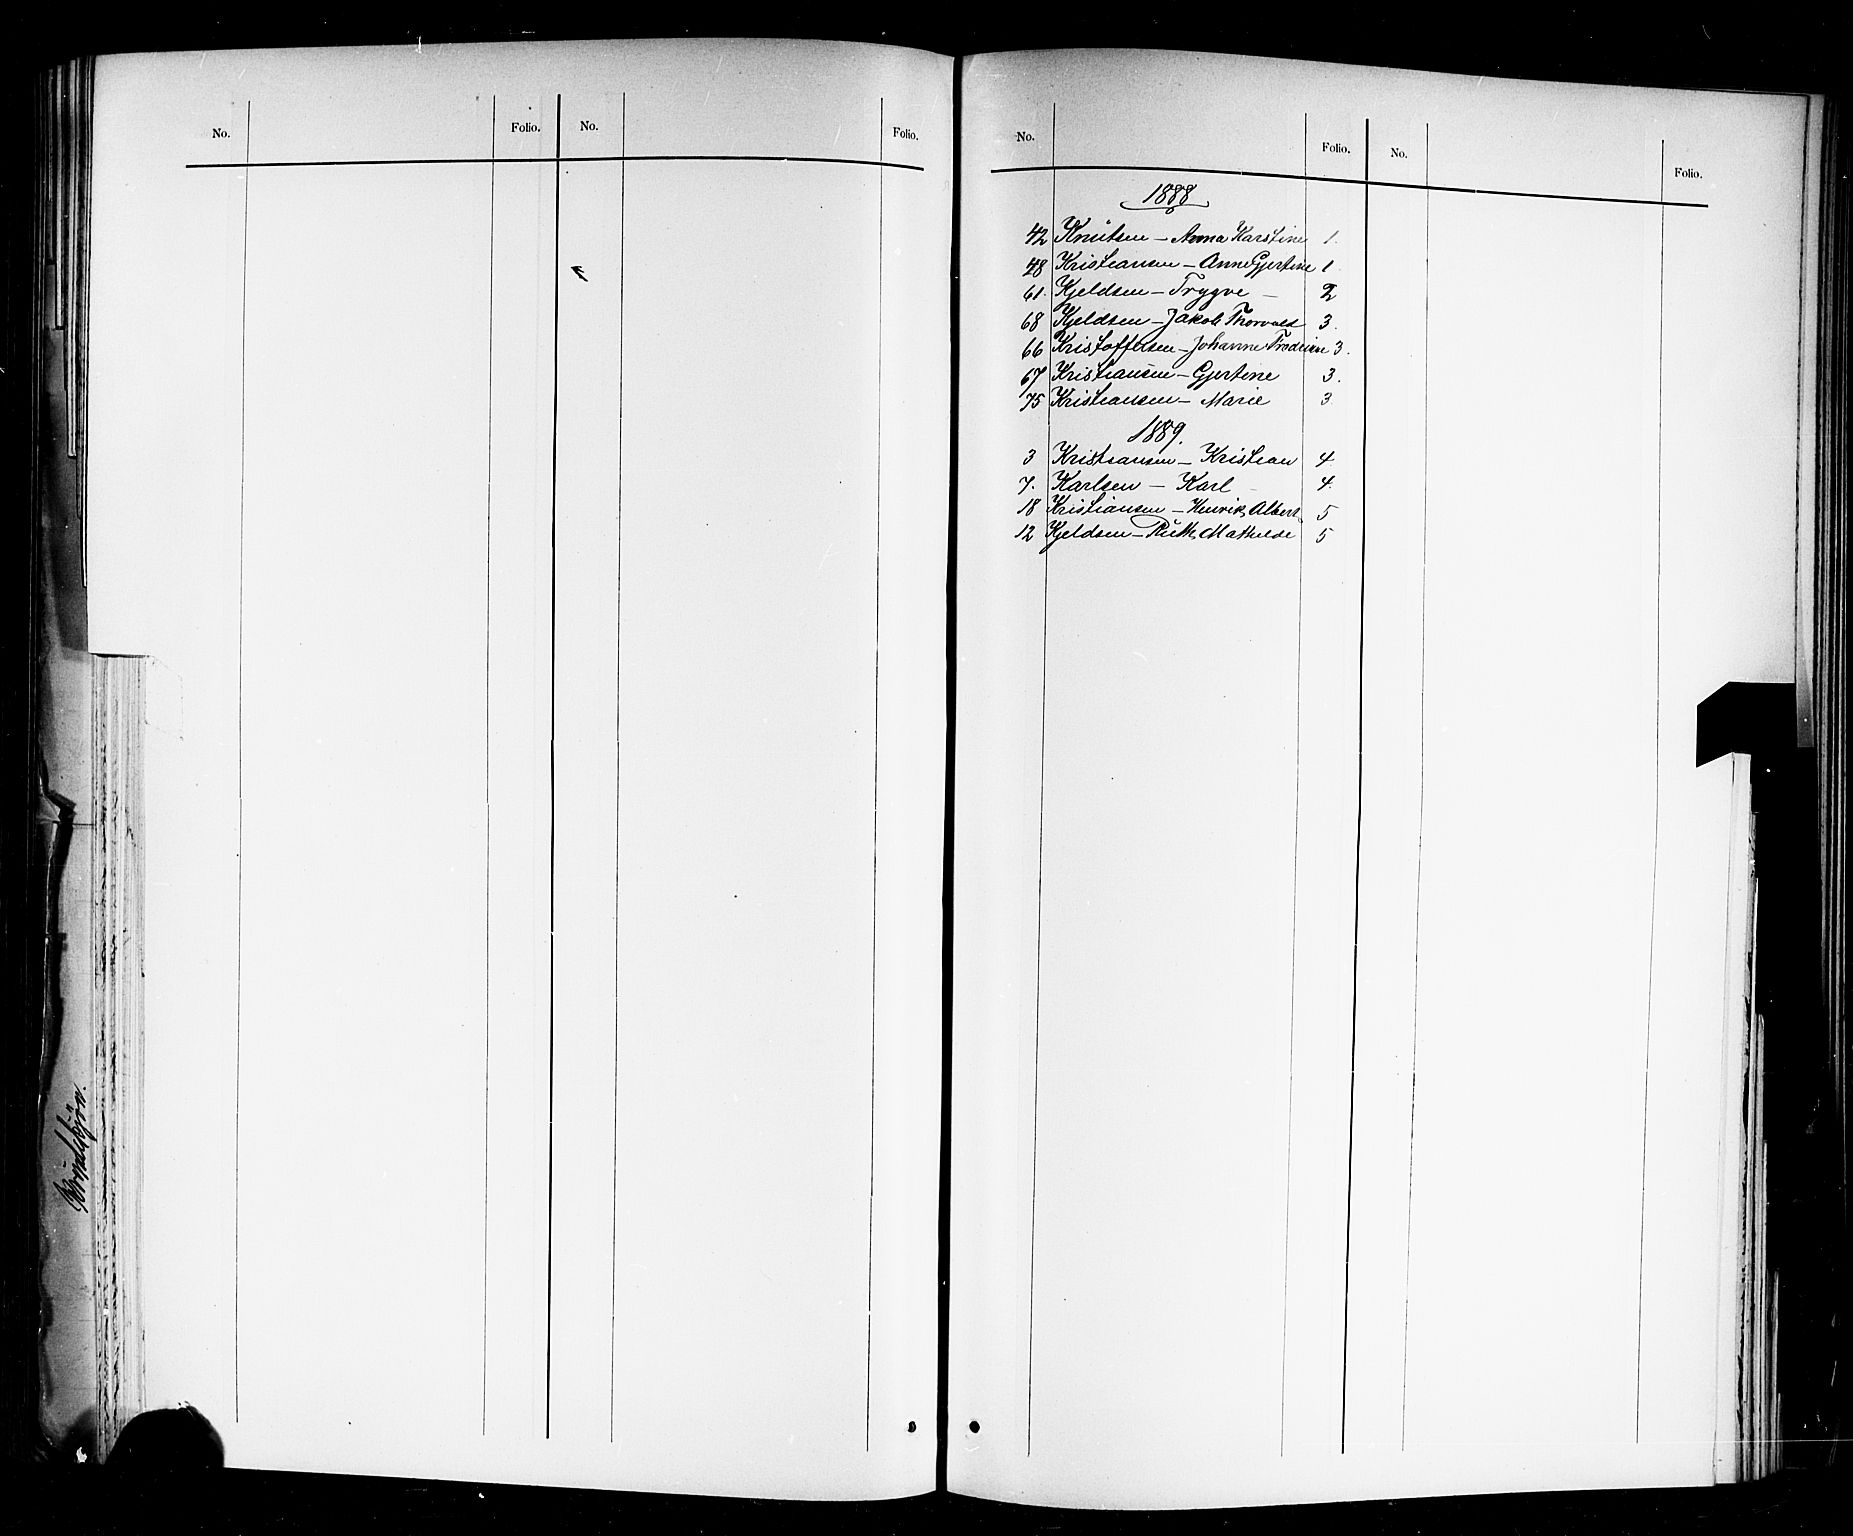 No. Folio. No. Folio.
No. Folio. No. Folio.
1888
42 Knutsen – Anna Karstine 1.
48 Kristiansen – Anne Gjertine 1
61. Kjeldsen – Trygve – 2
68 Kjeldsen – Jakob Thorvald 3.
66 Kristoffersen – Johanne 3.
67 Kristiansen – Gjertine 3.
75 Kristiansen – Marie 3.
1889.
3 Kristiansen – Kristian 4.
7. Karlsen – Karl – 4.
18 Kristiansen – Henrik Albert 5
12 Kjeldsen – Ruth Mathilde 5